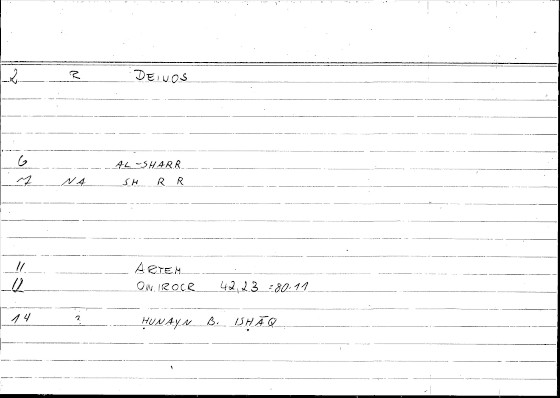 2 R DEINOS
6 AL-SHARR
7 NA SH R R
11 ARTEM
12 ONIROCR 42,23 = 80.11
14 ? ḤUNAYN B. ISḤĀQ